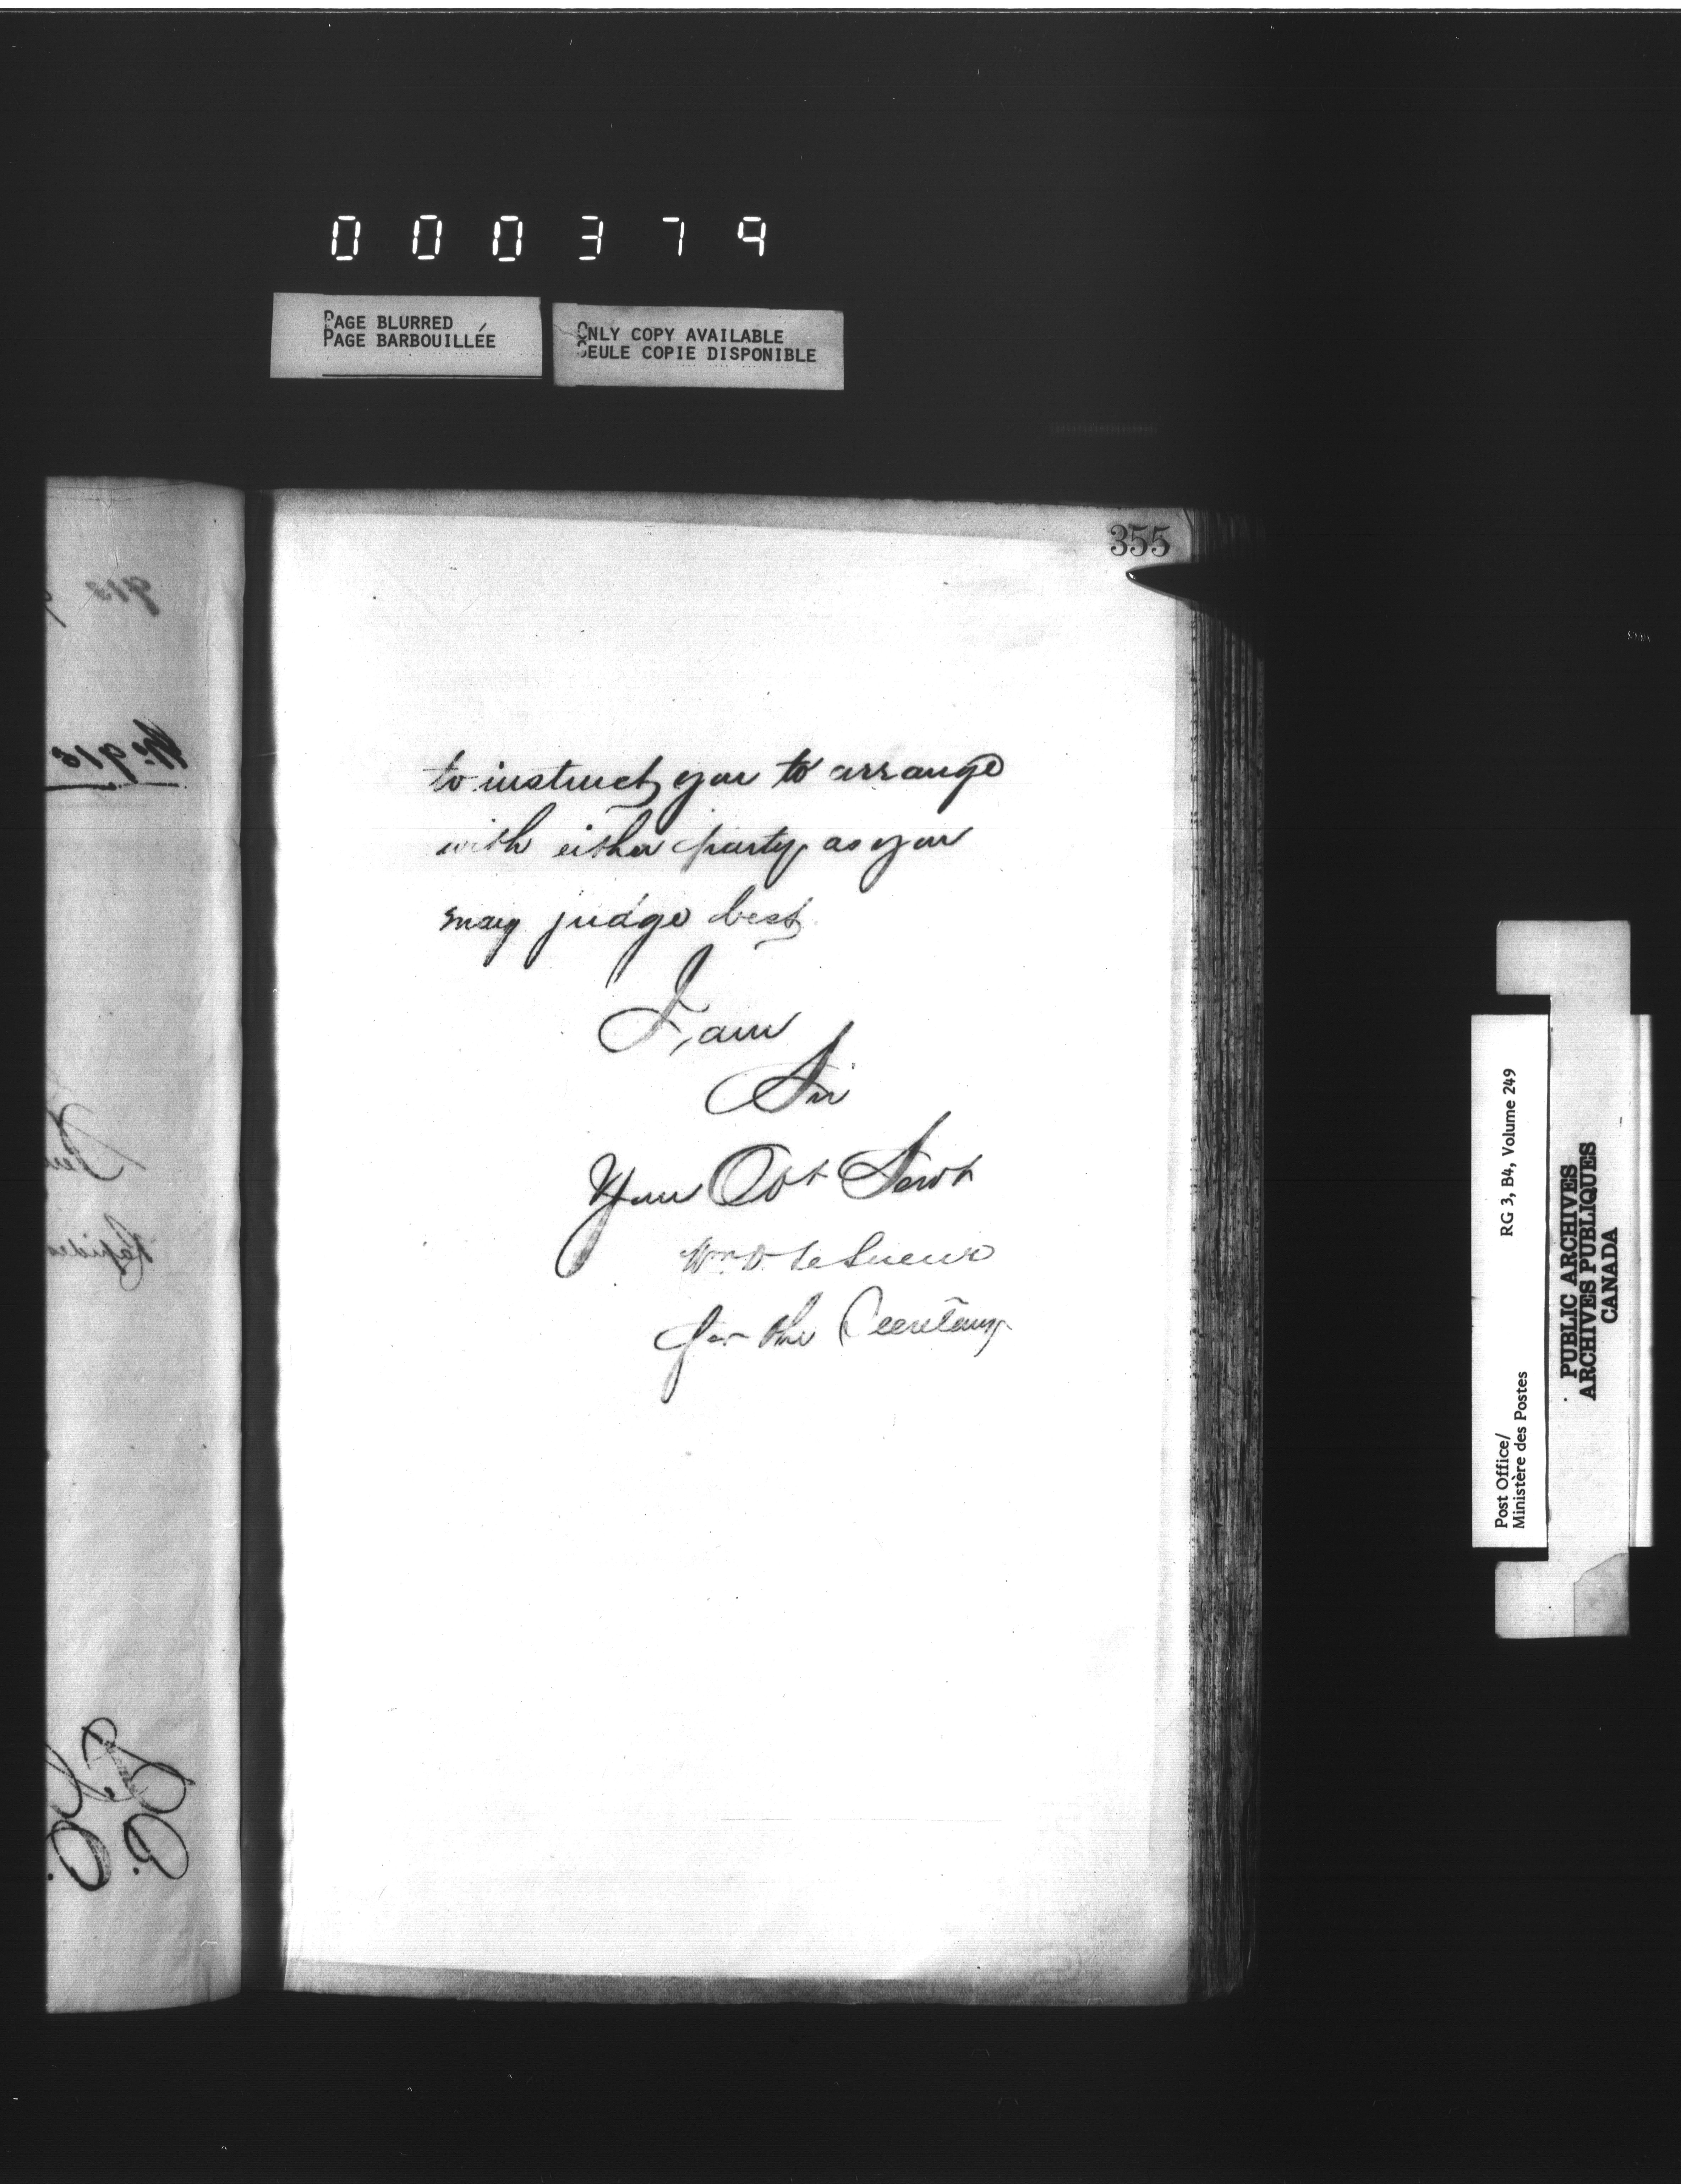 000379
PAGE BLURRED
PAGE BARBOUILLÉE
ONLY COPY AVAILABLE
SEULE COPIE DISPONIBLE
355
to instruct you to arrange
with either party as you
may judge best
I am
Sir
Your Obt Servt
Wm D. LeSueur
for the Secretary
No 918
Post Office/ RG 3, B4, Volume 249
Ministère des Postes
PUBLIC ARCHIVES
ARCHIVES PUBLIQUES
CANADA